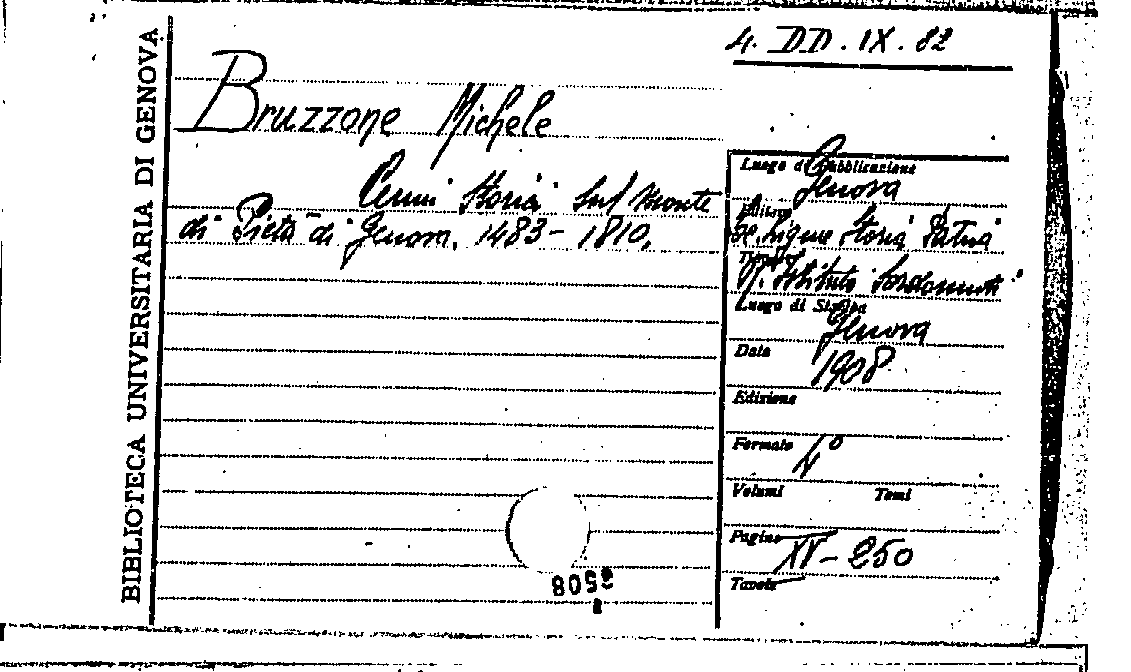 BIBLIOTECA UNIVERSITARIA DI GENOVA
4. DD. IX. 82
Bruzzone Michele
Cenni Storici sul Monte
di Pietà di Genova. 1483 - 1810.
Luogo di Pubblicazione
Genova
Editore
Ligure Storia Patria
Istituto Sordomuti
Luogo di Stampa
Genova
Data
1908
Edizione
Formato 4°
Volumi Tomi
Pagine XV - 250
Tavole